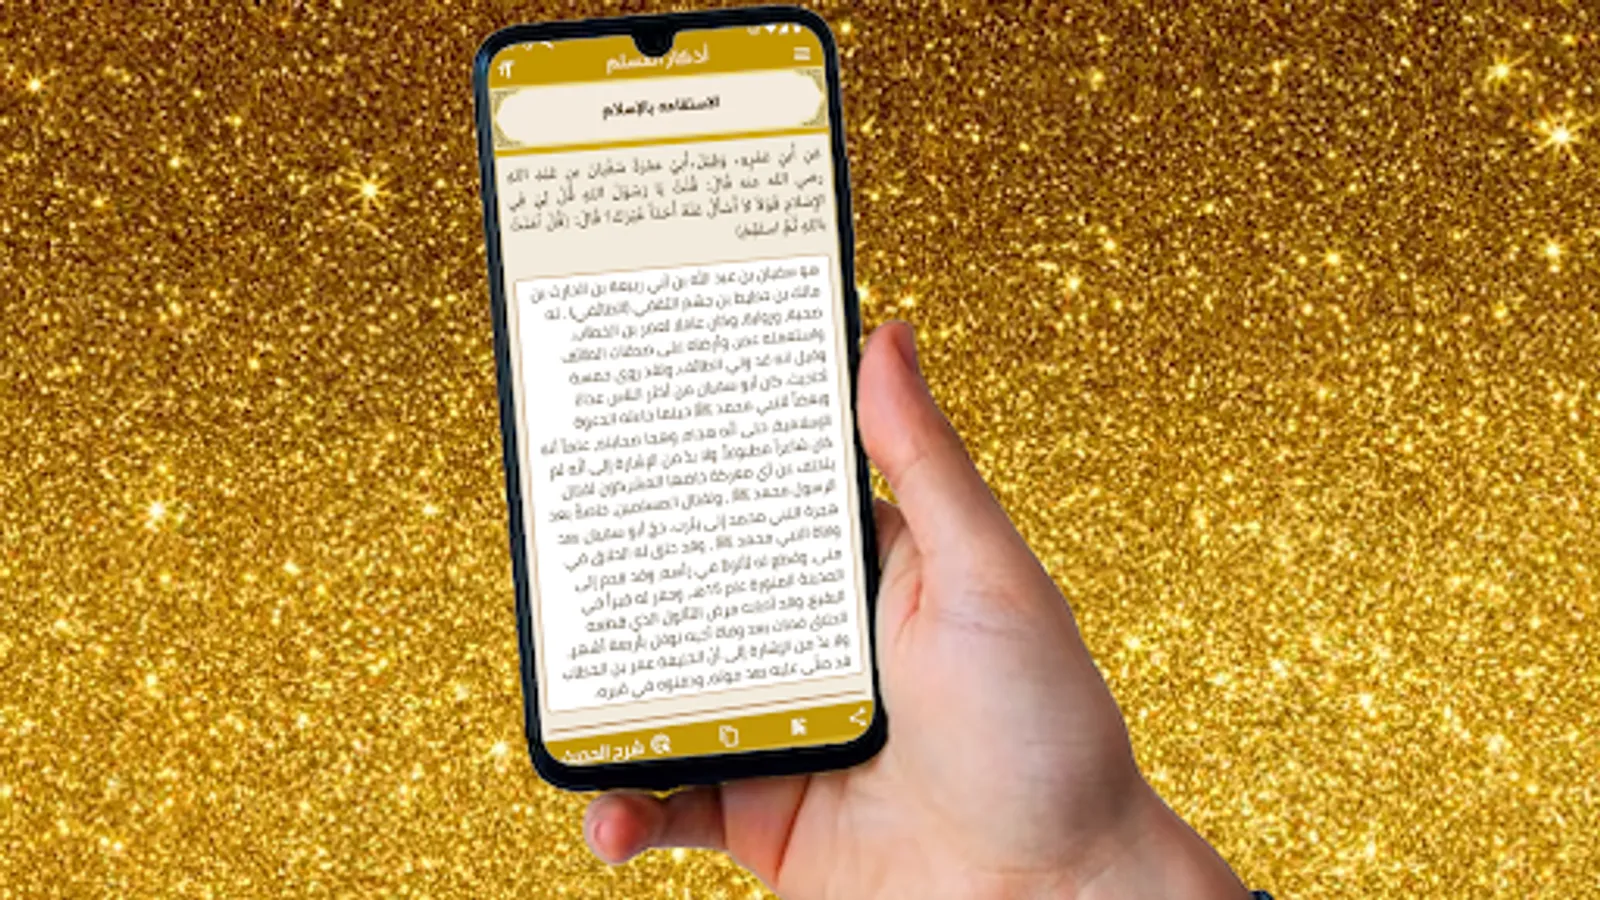 أذكار المسلم
الاستقامه بالإسلام
عَن أبيْ عَمْرٍو، وَقِيْلَ،أبيْ عمْرَةَ سُفْيَانَ بنِ عَبْدِ اللهِ
رضي الله عنه قَالَ: قُلْتُ يَا رَسُوْلَ اللهِ قُلْ لِيْ فِي
الإِسْلامِ قَوْلاً لاَ أَسْأَلُ عَنْهُ أَحَدَاً غَيْرَكَ؟ قَالَ: (قُلْ آمَنْتُ
باللهِ ثُمَّ استَقِمْ)
هو سفيان بن عبد الله بن أبي ربيعة بن الحارث بن
مالك بن حطيط بن جشم الثقفي (الطائفي) . له
صحبة، ورواية، وكان عاملا لعمر بن الخطاب،
واستعمله عمر وأرضاه على صدقات الطائف
وقيل انه قد ولي الطائف، ولقد روى خمسة
أحاديث، كان أبو سفيان من أكثر الناس عداءً
وبغضاً للنبي محمد ﷺ حينما جاءته الدعوة
الإسلامية، حتى أنّه هجاه، وهجا صحابته، علماً أنه
كان شاعراً مطبوعاً، ولا بدّ من الإشارة إلى أنّه لم
يتخلف عن أي معركة خاضها المشركون لقتال
الرسول محمد ﷺ ، ولقتال المسلمين، خاصةً بعد
هجرة النبي محمد إلى يثرب، حجّ أبو سفيان بعد
وفاة النبي محمد ﷺ ، وقد حلق له الحلاق في
منى، وقطع له ثألولاً في رأسه، وقد قدم إلى
المدينة المنورة عام 15هـ، وحفر له قبراً في
البقيع، وقد أصابه مرض الثألول الذي قطعه
الحلاق فمات بعد وفاة أخيه نوفل بأربعة أشهر،
ولا بدّ من الإشارة إلى أنّ الخليفة عمر بن الخطاب
قد صلّى عليه بعد موته، ودفنوه في قبره.
شرح الحديث